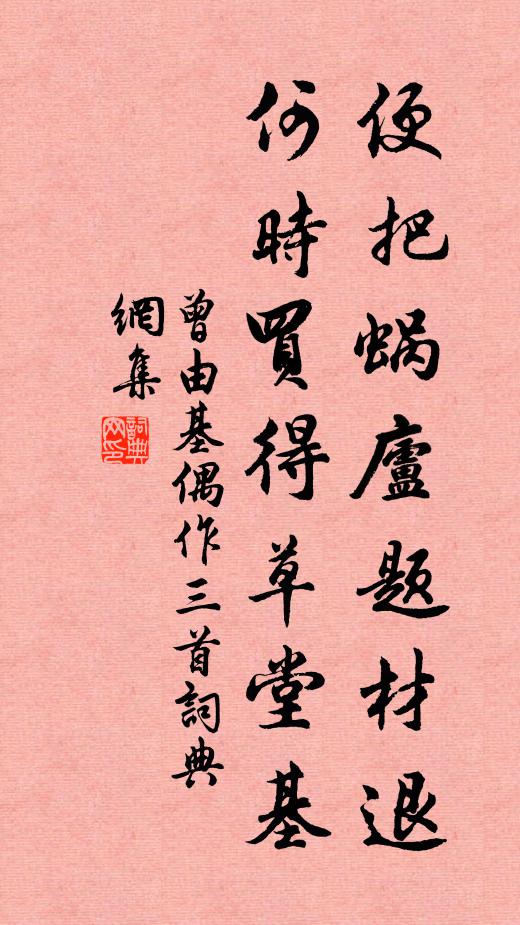 便把蝸廬題材退
何時買得草堂基
曾由基偶作三首詞典
網集
詞典網印